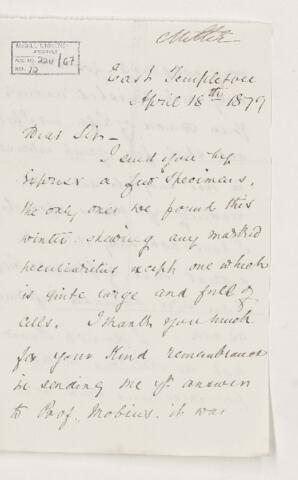 McGILL UNIVERSITY
ARCHIVES
ACC. NO. 2211/67
REF. 12
East Templeton
April 18th 1879
Dear Sir–
I send you by
express a few specimens,
the only ones we found this
winter showing any marked
peculiarities except one which
is quite large and full of
cells. I thank you much
for your kind remembrance
in sending me yr answer
to Prof. Mobius. it was